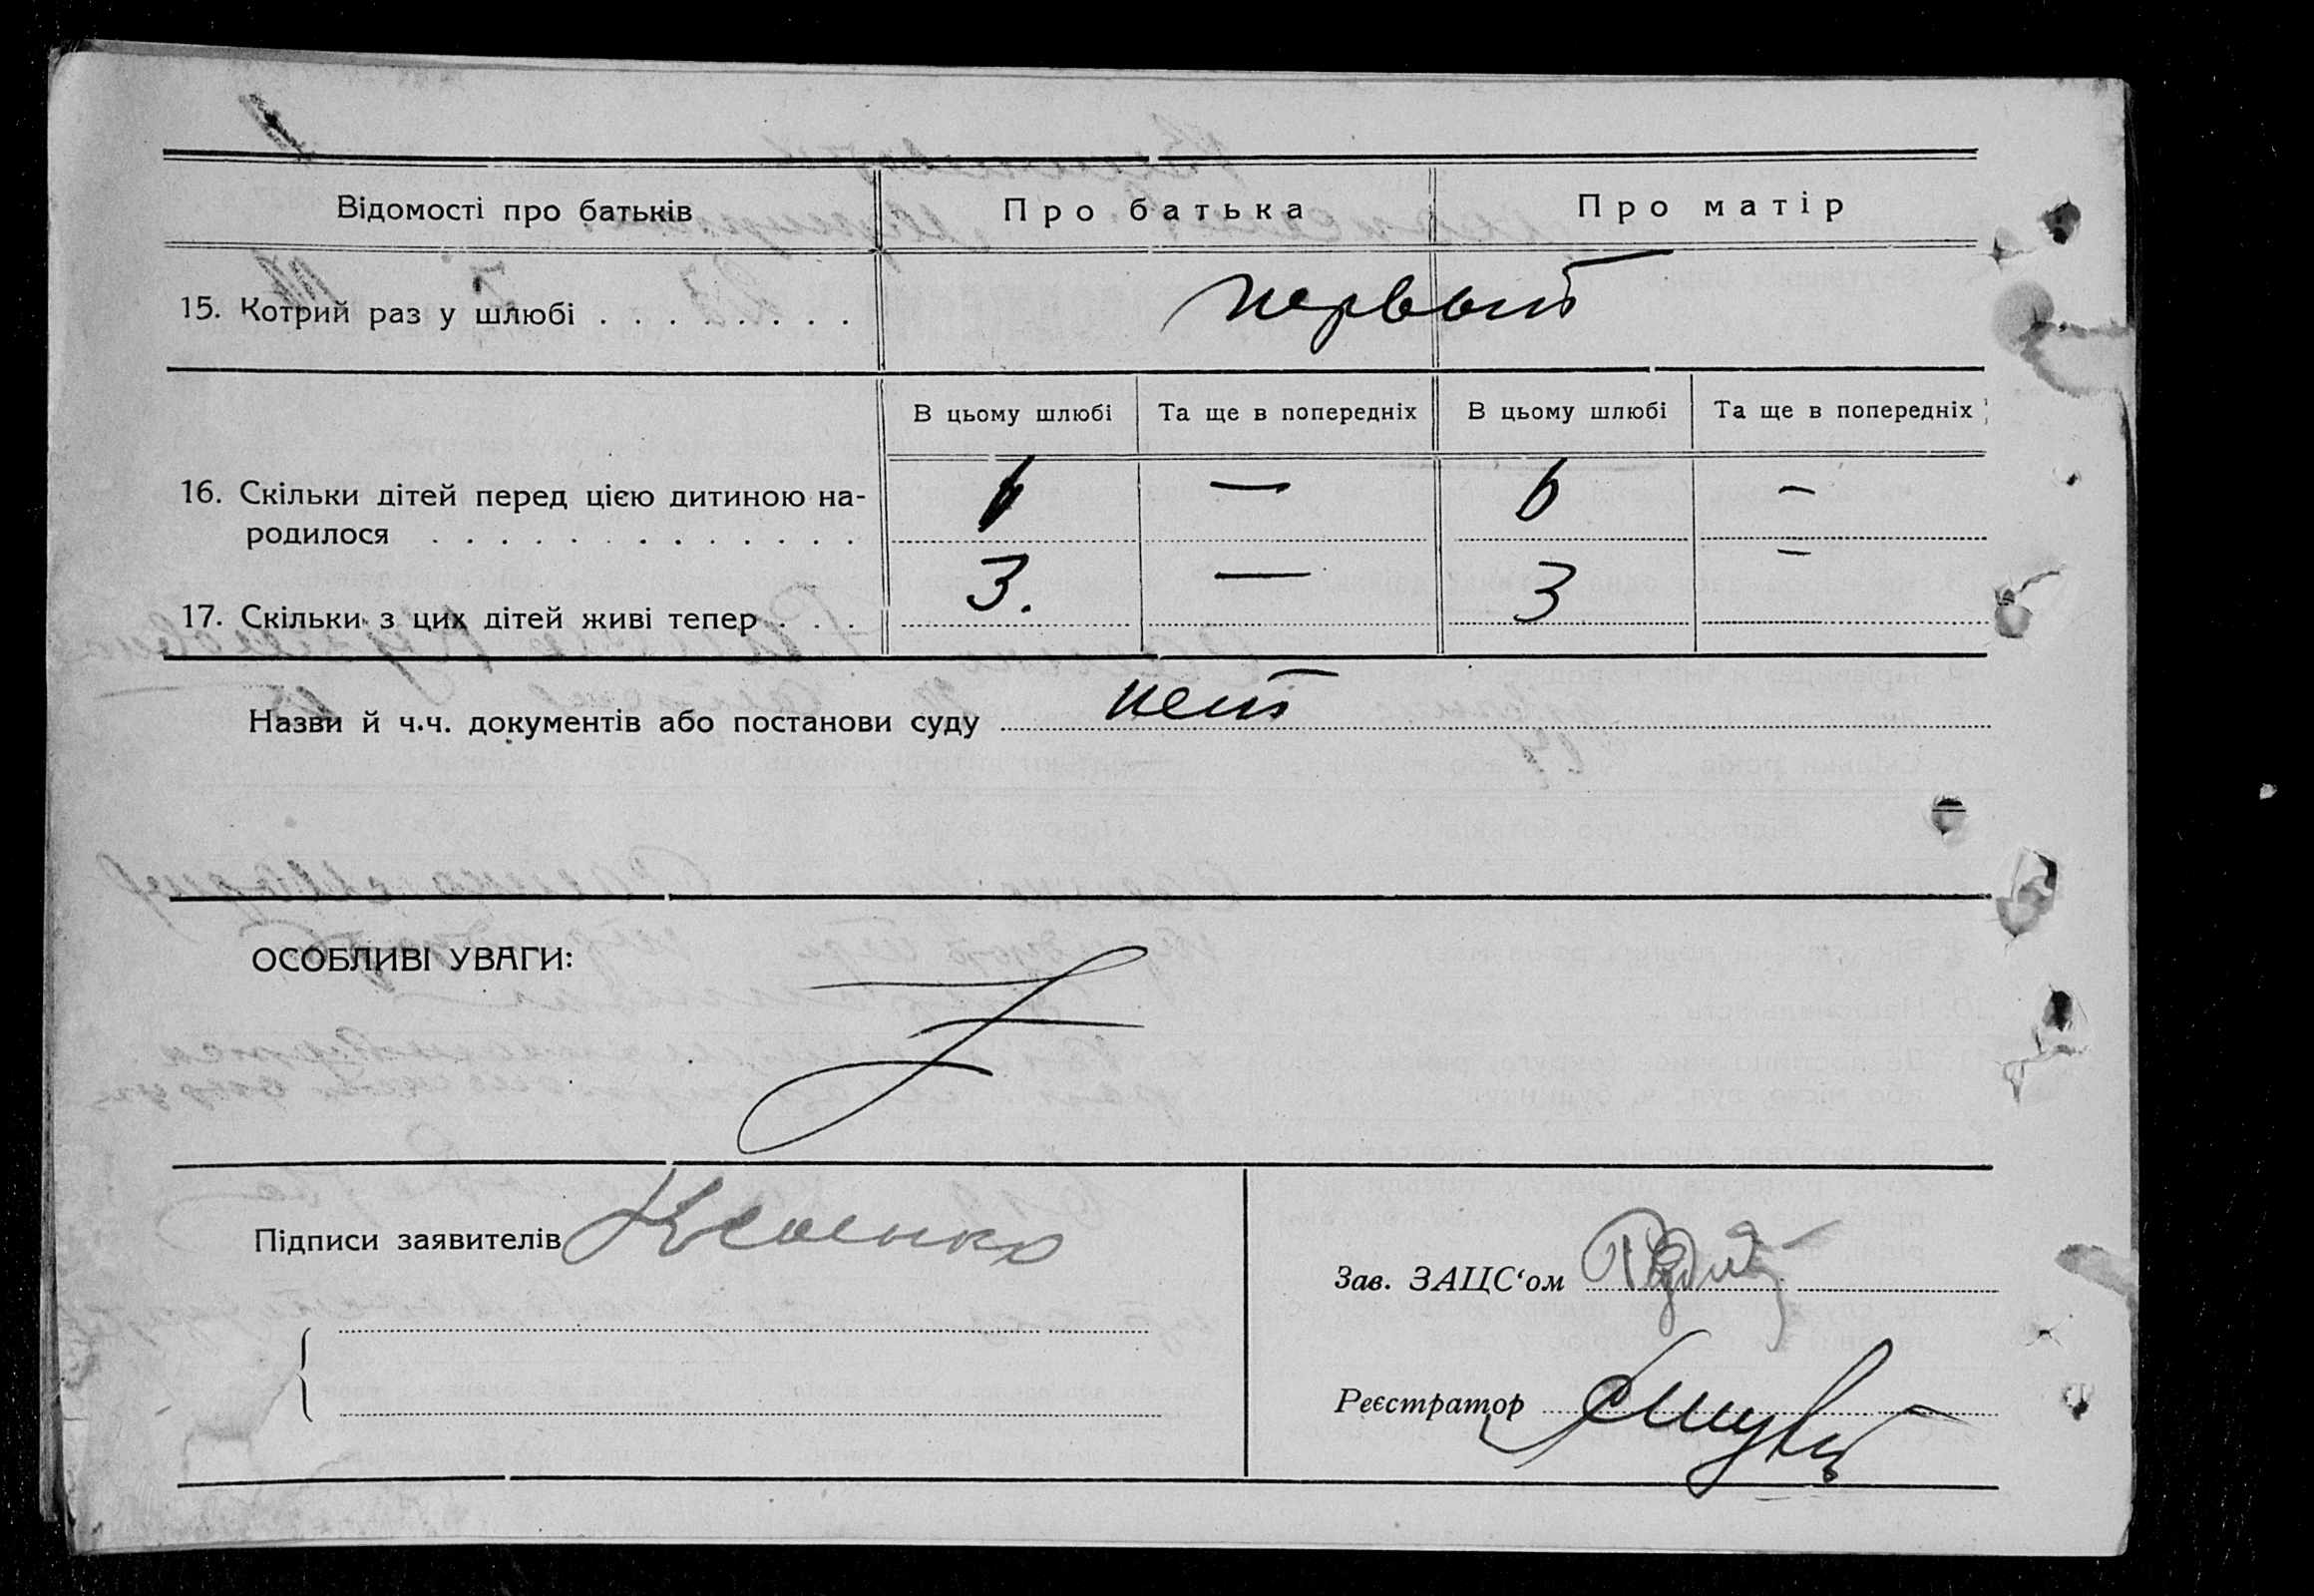 Відомості про батьків Про батька Про матір
15. Котрий раз у шлюбі . . . . . . . . первый
В цьому шлюбі Та ще в попередніх В цьому шлюбі Та ще в попередніх
16. Скільки дітей перед цією дитиною на- 6 — 6 —
родилося . . . . . . . . . . . . .
17. Скільки з цих дітей живі тепер . . . 3. — 3 —
Назви й ч.ч. документів або постанови суду нет
ОСОБЛИВІ УВАГИ:
Підписи заявителів
Зав. ЗАЦС‘ом
Реєстратор